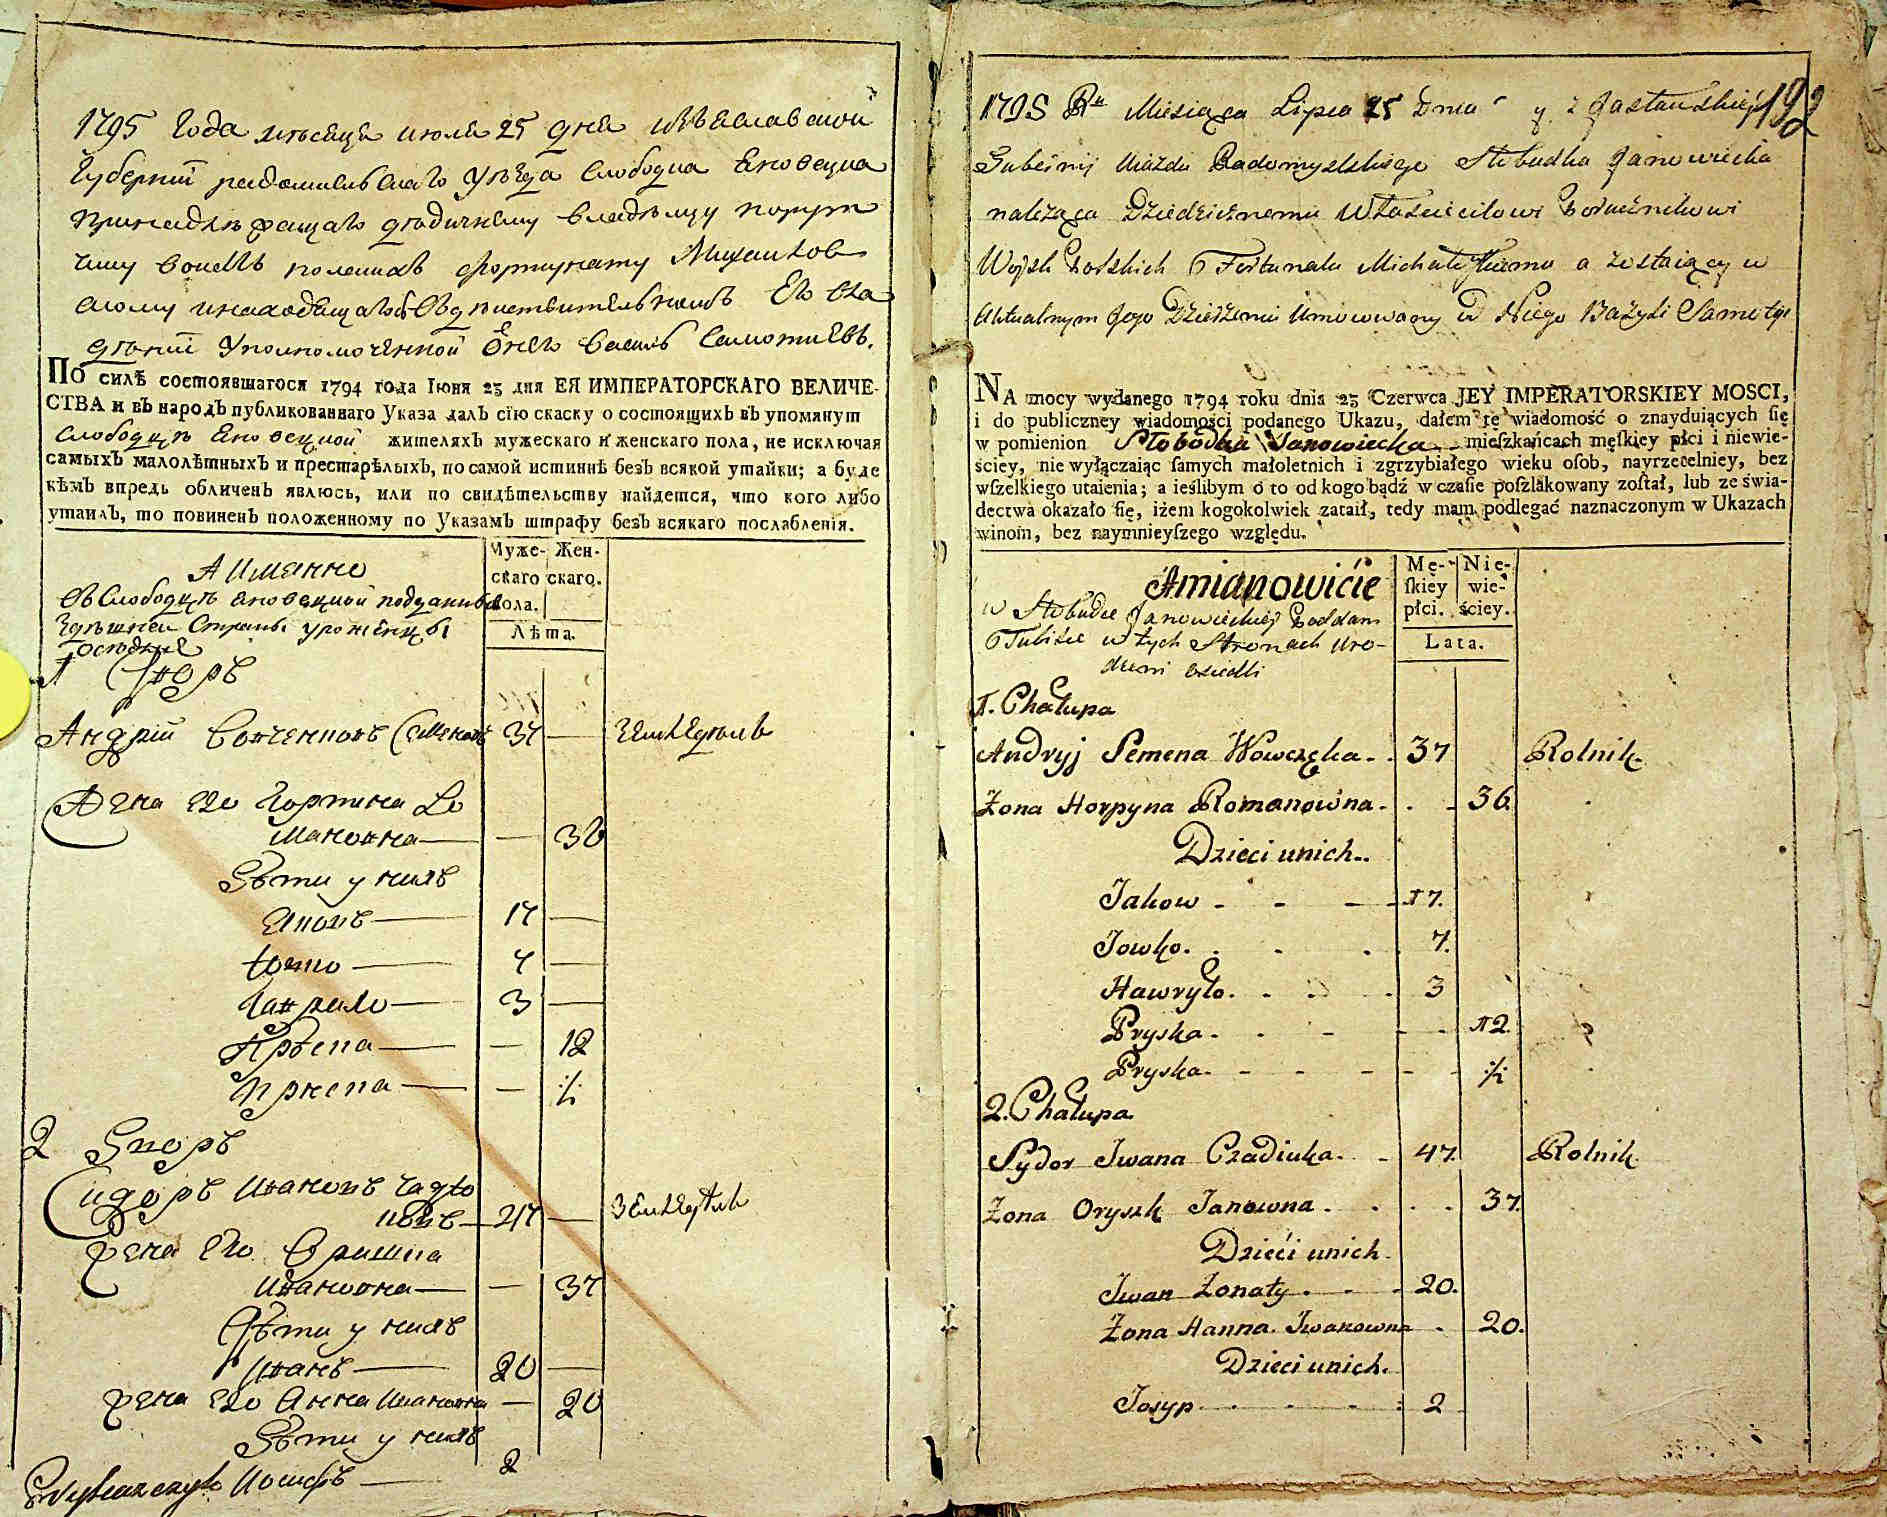 1795 Года мѣсяца июля 25 дня Изъяславской
Губернии радомисльскаго уѣзда Слободка Яновецка
принадлежащаго дѣдичному владѣльцу порут
чику войскъ полскихъ Фортунату Михалков
скому инаходящагось въдѣиствительномъ Его вла
дѣнии Уполномоченной Онего Василь Самотиевъ.
ПО силѣ состоявшагося 1794 года Іюня 23 дня ЕЯ ИМПЕРАТОРСКАГО ВЕЛИЧЕ-
СТВА и въ народъ публикованнаго Указа далъ сїю скаску о состоящихъ въ упомянут
Слободцѣ Яновецкой жителяхъ мужескаго и женскаго пола, не исключая
самыхъ малолѣтныхъ и престарѣлыхъ, по самой истиннѣ безъ всякой утайки; а буде
кѣмъ впредь обличенъ явлюсь, или по свидѣтельству найдется, что кого либо
утаилъ, то повиненъ положенному по Указамъ штрафу безъ всякаго послабленїя.
Муже- Жен-
скаго скаго.
пола.
Лѣта.
А Имянно
въ Слободцѣ Яновецкой подданныя
Здѣшней Страны уроженцы
оседлие
1 Дворъ
Андрій Вовченковъ Семеновъ 37 — земледѣль
Жена Его Горпина Ро
мановна — — 36
Дѣти у нихъ
Яковъ — 17 —
Ювко — 7 —
Гаврило — 3 —
Прѣска — — 12
Приска — — ./.
2 Дворъ
Сидоръ Ивановъ Чадю
ковъ — 47 — Земледѣль
жена Его Оришка
Ивановна — — 37
Дѣти у нихъ
Иванъ — 20 —
жена Его Анна Ивановна — 20
Дѣти у нихъ
Иосифъ — 2
1795 Rᵘ Miesiąca Lipca 25 Dnia y z Jasławskiej 192
Gubernij Uiazdu Radomyslskiego Słobudka Janowiecka
należąca Dziedzicznemu Właścicilowi Porucznikowi
Woysk Polskich Fortunatu Michałkowskiemu a zostaiący w
Aktualnym Jego Dzierżeniu Umocowany od Niego Bazyli Samotyi
NA mocy wydanego 1794 roku dnia 23 Czerwca JEY IMPERATORSKIEY MOSCI,
i do publiczney wiadomości podanego Ukazu, dałem tę wiadomość o znayduiących ſię
w pomienion Słobodka Janowiecka mieſzkańcach męſkiey płci i niewie-
ściey, nie wyłączaiąc ſamych małoletnich i zgrzybiałego wieku oſob, nayrzetelniey, bez
wſzelkiego utaienia; a ieślibym o to od kogo bądź w czaſie poſzlakowany zoſtał, lub ze świa-
dectwa okazało ſię, iżem kogokolwiek zataił, tedy mam podlegać naznaczonym w Ukazach
winom, bez naymnieyſzego względu.
Mę- Nie-
ſkiey wie-
płci. ściey.
Lata.
Amianowicie
w Słobudce Janowieckiej Poddani
Tubilce w tych Stronach Uro-
dzeni osiedli
1. Chałupa
Andryj Semena Wowczęka 37 Rolnik
Żona Horpyna Romanowna 36
Dzieci unich
Jakow 17.
Jowko 7.
Hawryło 3
Pryska 12.
Pryska ./.
2. Chałupa
Sydor Iwana Czadiuka 47 Rolnik
Żona Oryszk Janowna 37.
Dzieći unich
Iwan Żonaty 20.
Żona Hanna Iwanowna 20.
Dzieci unich
Josyp 2